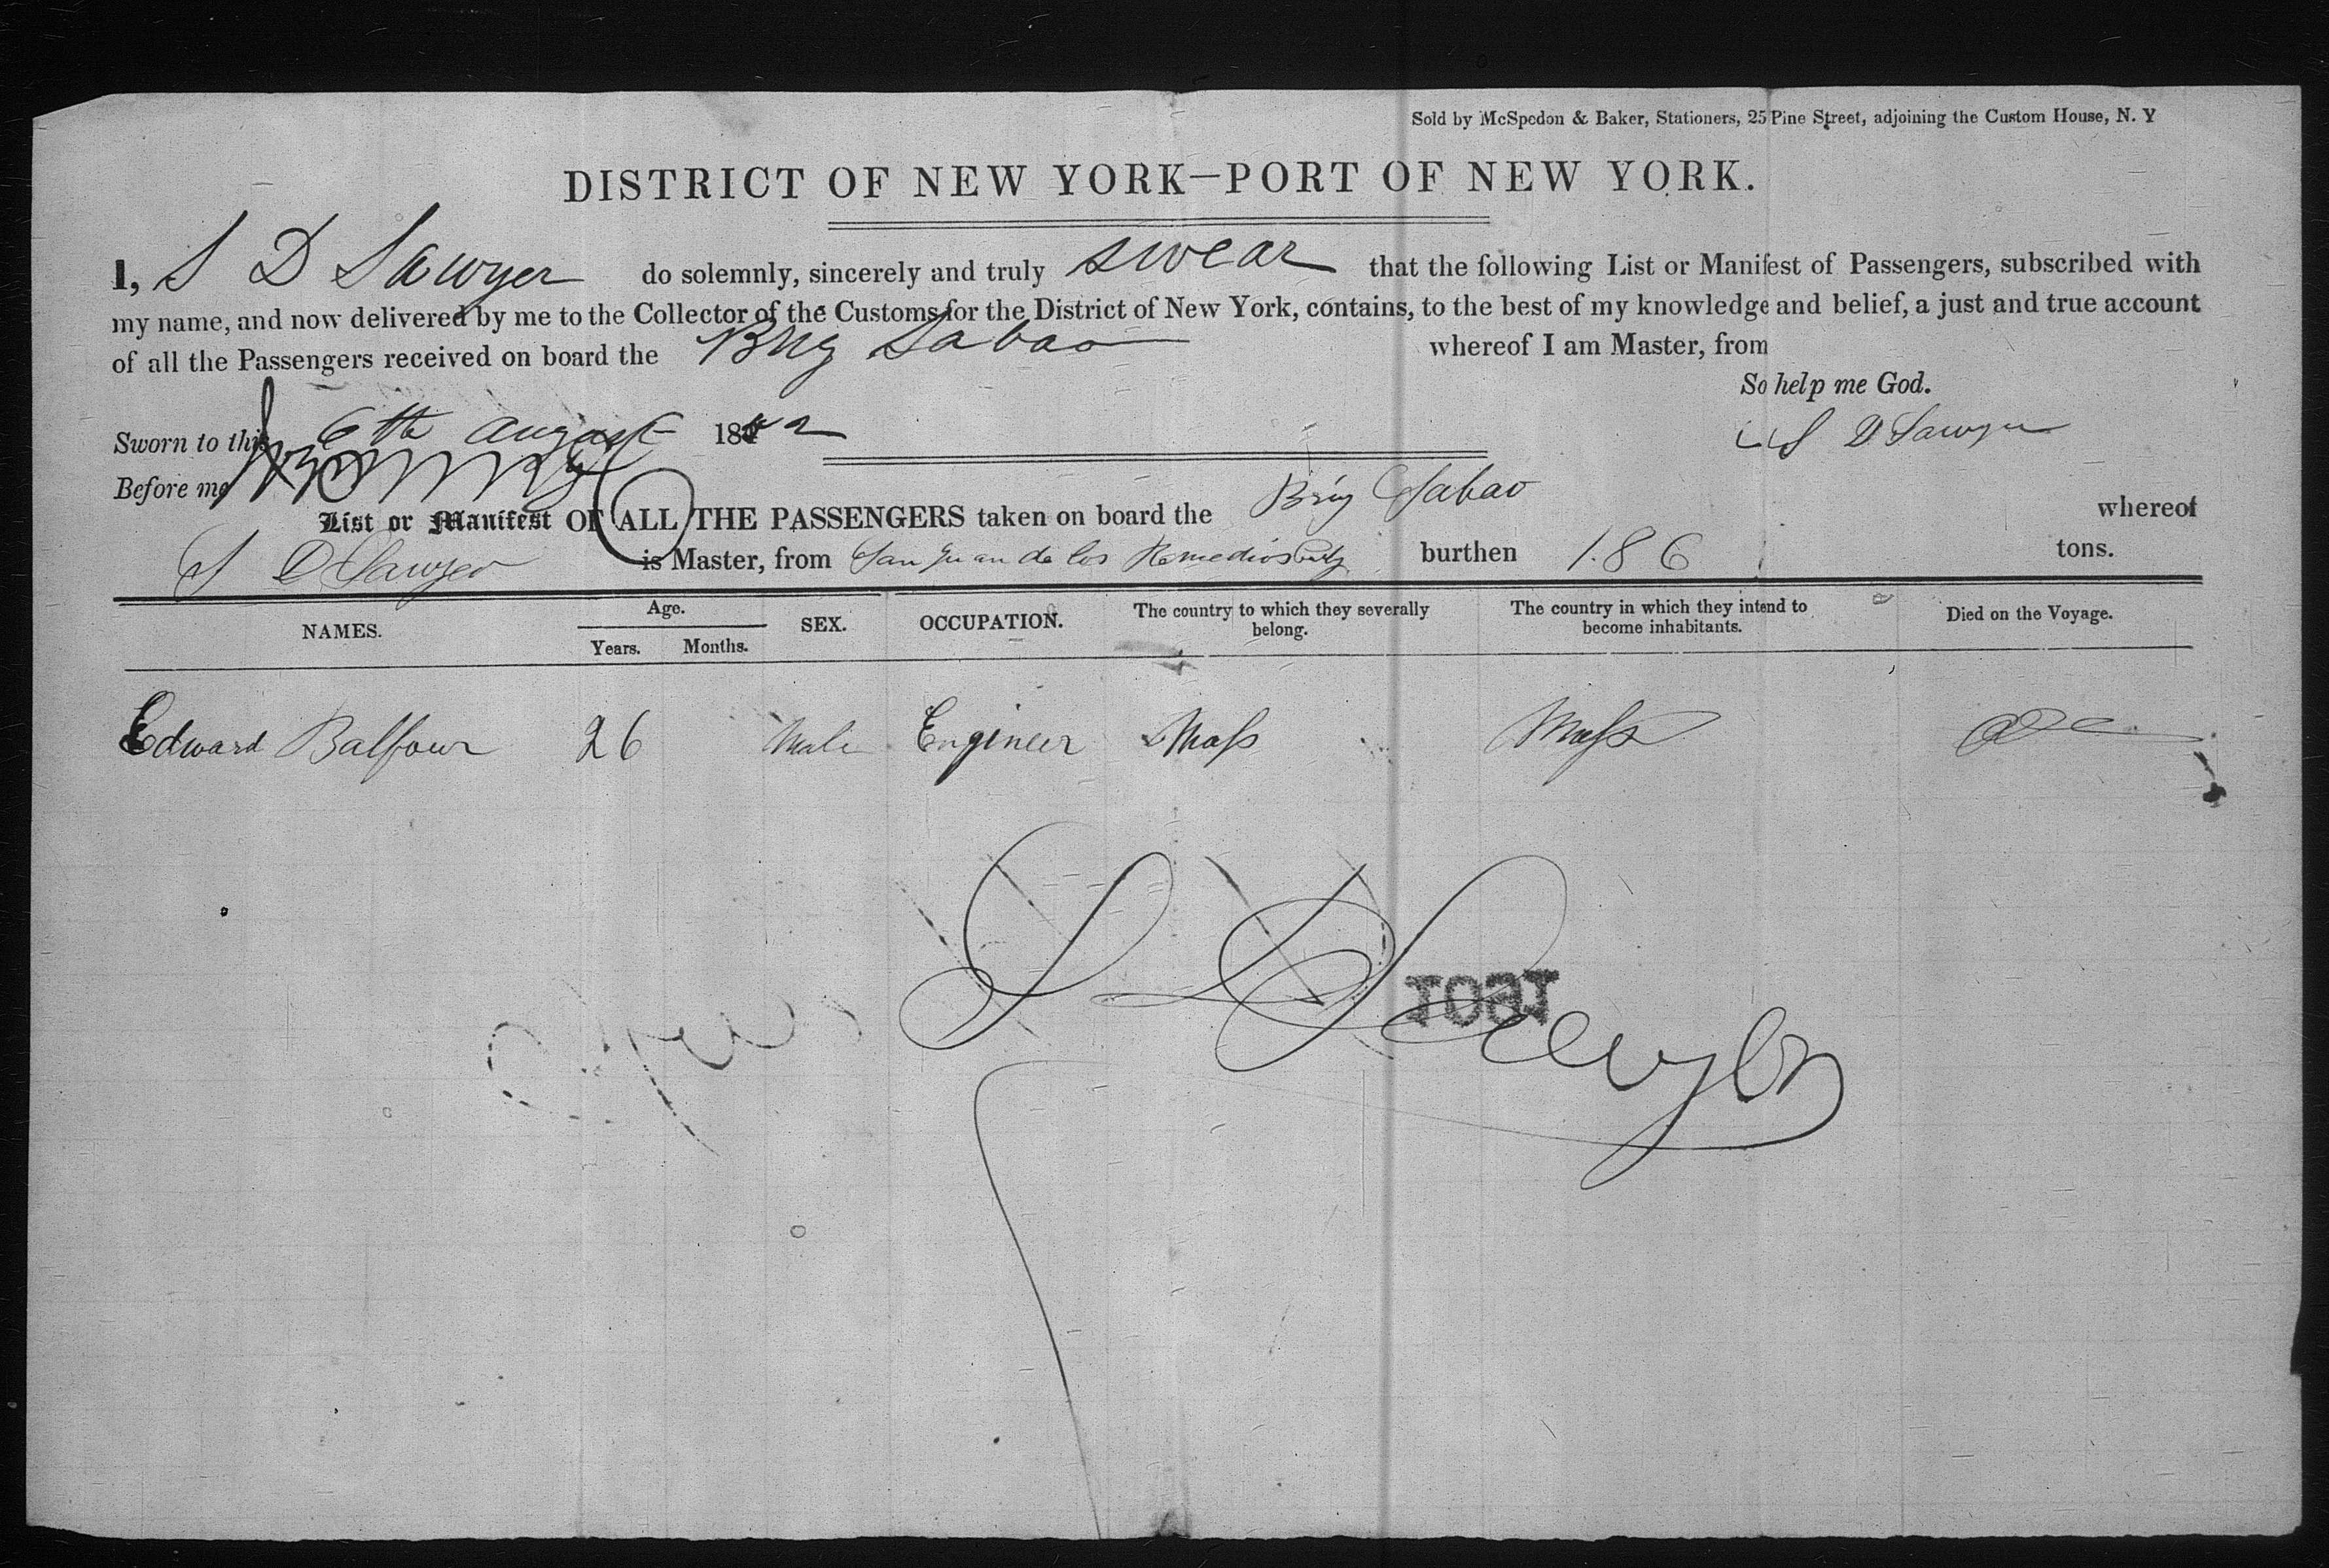 Sold by McSpedon & Baker, Stationers, 25 Pine Street, adjoining the Custom House, N. Y
DISTRICT OF NEW YORK—PORT OF NEW YORK.
I, S D Sawyer do solemnly, sincerely and truly swear that the following List or Manifest of Passengers, subscribed with
my name, and now delivered by me to the Collector of the Customs for the District of New York, contains, to the best of my knowledge and belief, a just and true account
of all the Passengers received on board the Brig Sabao whereof I am Master, from
So help me God.
Sworn to this 6th august 1852
S D Sawyer
Before me
List or Manifest OF ALL THE PASSENGERS taken on board the Brig Sabao whereof
S D Sawyer is Master, from San Juan de los Remedios burthen 186 tons.
NAMES. Age. Years. Months. SEX. OCCUPATION. The country to which they severally belong. The country in which they intend to become inhabitants. Died on the Voyage.
Edward Balfour 26 Male Engineer Mass Mass
S D Sawyer
1601